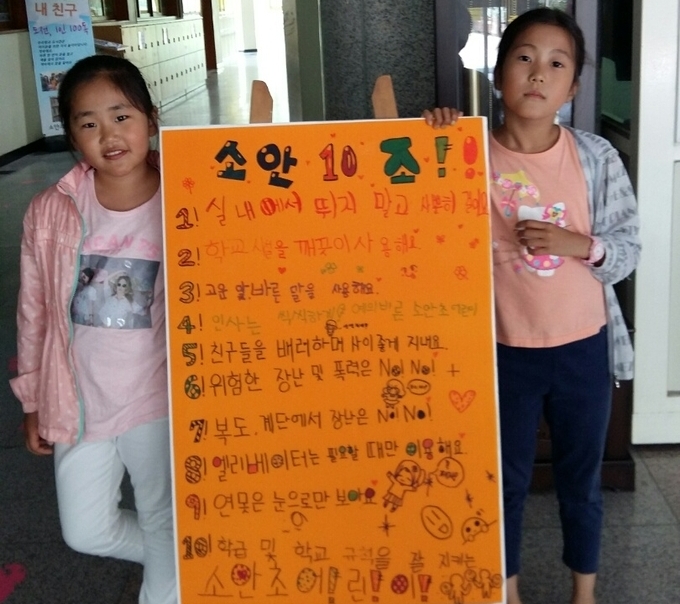 내 친구
소안 10 조!!
1! 실내에서 뛰지 말고 사뿐히 걸어요
2! 학교 샘을 깨끗이 사용해요
3! 고운 말, 바른 말을 사용해요.
4! 인사는 씩씩하게! 예의바른 소안초 어린이
5! 친구들을 배려하며 사이좋게 지내요.
6! 위험한 장난 및 폭력은 No! No!
7! 복도, 계단에서 장난은 No! No!
8! 엘리베이터는 필요할 때만 이용해요.
9! 연못은 눈으로만 보아요
10! 학급 및 학교 규칙을 잘 지키는
소안초 어!린!이!